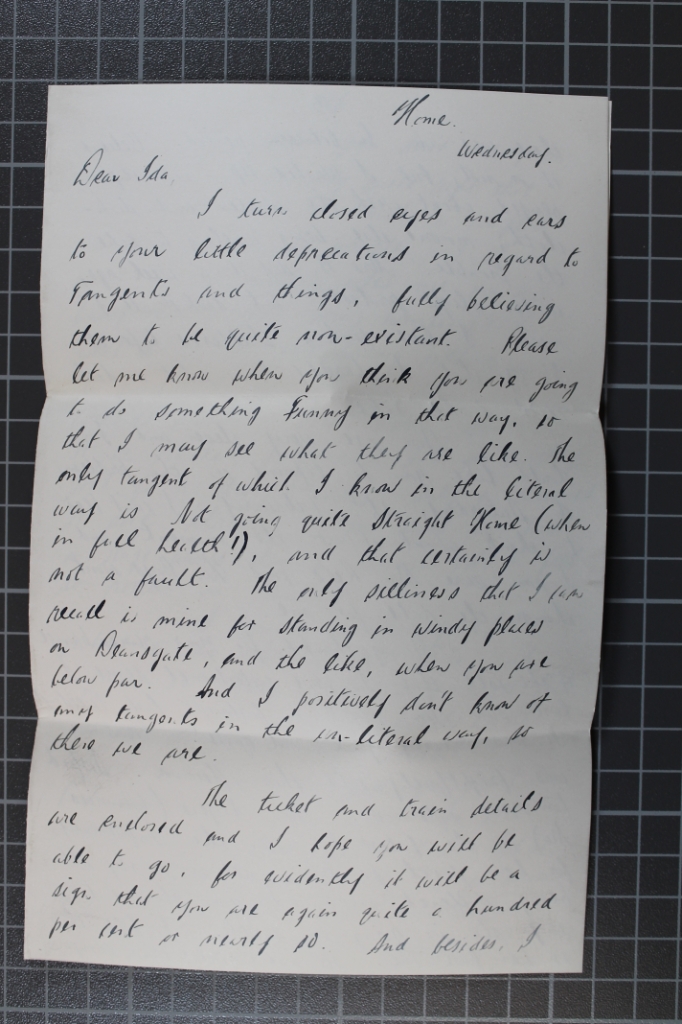 Home.
Wednesday.
Dear Ida,
I turn closed eyes and ears
to your little deprecations in regard to
Tangents and things, fully believing
them to be quite non-existant. Please
let me know when you think you are going
to do something Funny in that way, so
that I may see what they are like. The
only tangent of which I know in the literal
way is Not going quite Straight Home (when
in full health!), and that certainly is
not a fault. The only silliness that I can
recall is mine for standing in windy places
on Deansgate, and the like, when you are
below par. And I positively don't know of
any tangents in the un-literal way, so
there we are.
The ticket and train details
are enclosed and I hope you will be
able to go, for evidently it will be a
sign that you are again quite a hundred
per cent or nearly so. And besides, I